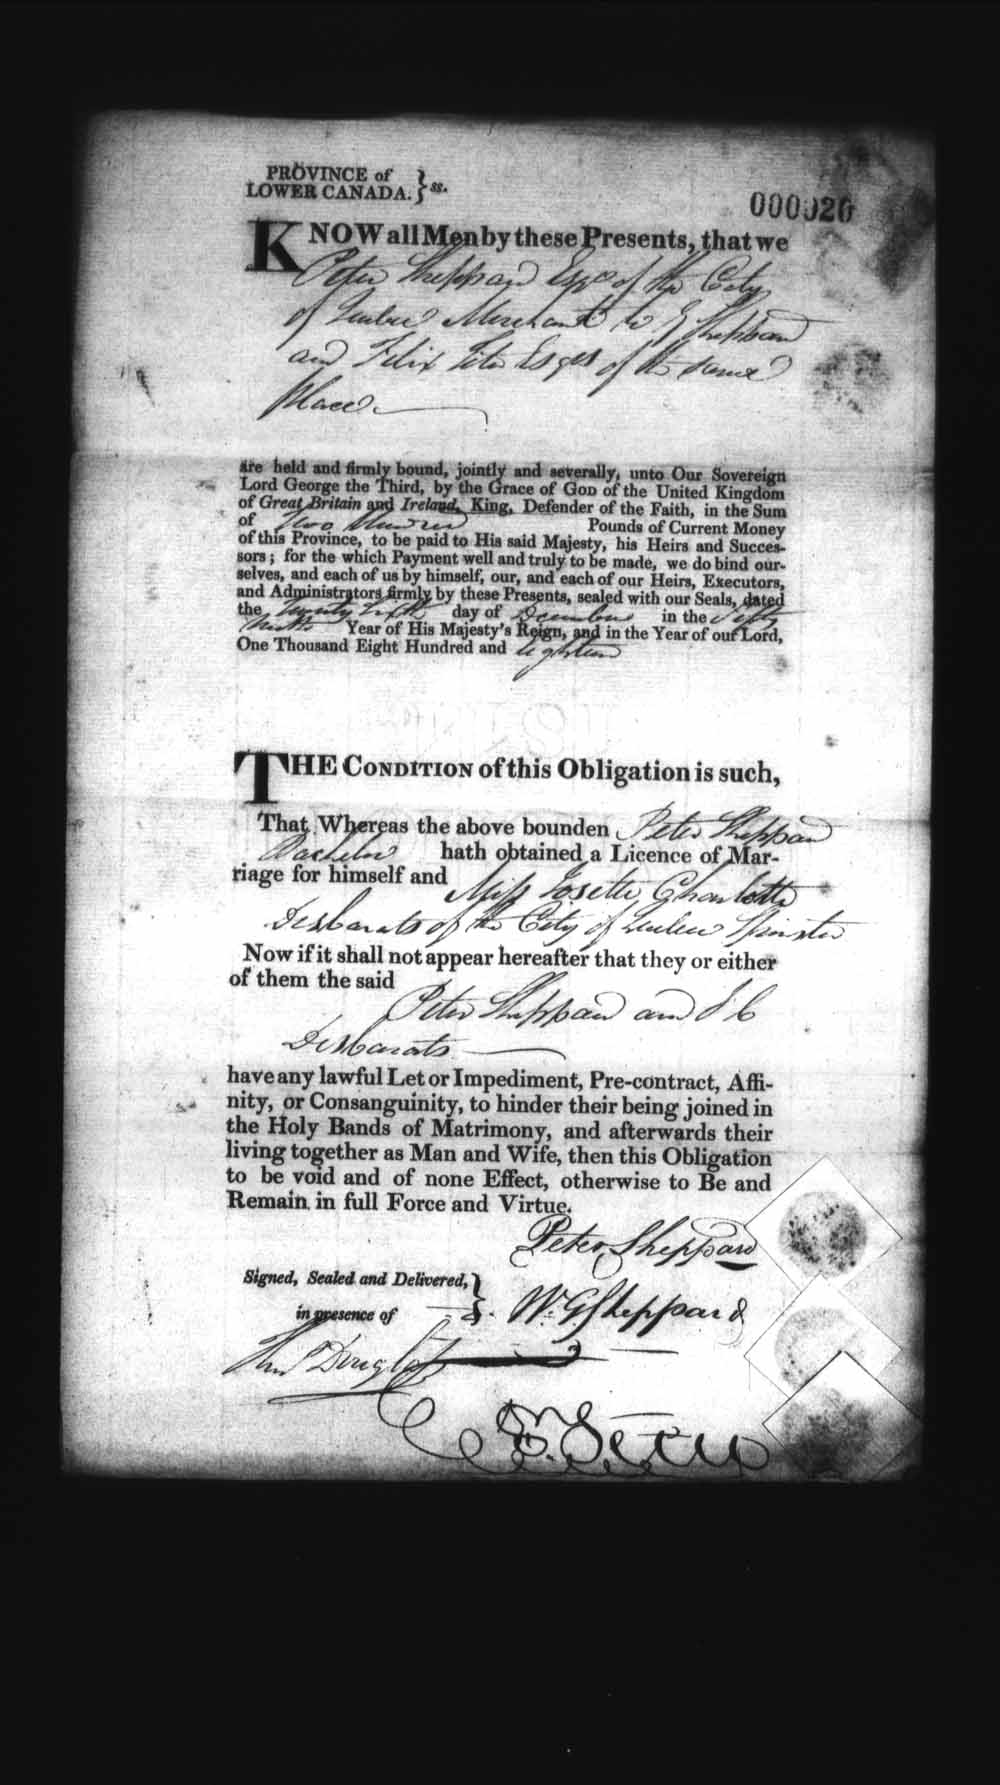 PROVINCE of
LOWER CANADA. } ss.
000020
KNOW all Men by these Presents, that we
Peter Sheppard Esqr. of the City
of Quebec Merchant W G Sheppard
and Felix Tétu Esqrs of the same
Place
are held and firmly bound, jointly and severally, unto Our Sovereign
Lord George the Third, by the Grace of GOD of the United Kingdom
of Great Britain and Ireland, King, Defender of the Faith, in the Sum
of Two Hundred Pounds of Current Money
of this Province, to be paid to His said Majesty, his Heirs and Succes-
sors; for the which Payment well and truly to be made, we do bind our-
selves, and each of us by himself, our, and each of our Heirs, Executors,
and Administrators firmly by these Presents, sealed with our Seals, dated
the Twenty Sixth day of December in the Fifty
Ninth Year of His Majesty's Reign, and in the Year of our Lord,
One Thousand Eight Hundred and eighteen
THE CONDITION of this Obligation is such,
That Whereas the above bounden Peter Sheppard
Bachelor hath obtained a Licence of Mar-
riage for himself and Miss Josette Charlotte
Desbarats of the City of Quebec Spinster
Now if it shall not appear hereafter that they or either
of them the said
Peter Sheppard and J C
Desbarats
have any lawful Let or Impediment, Pre-contract, Affi-
nity, or Consanguinity, to hinder their being joined in
the Holy Bands of Matrimony, and afterwards their
living together as Man and Wife, then this Obligation
to be void and of none Effect, otherwise to Be and
Remain in full Force and Virtue.
Peter Sheppard
Signed, Sealed and Delivered, }
in presence of
W. G Sheppard
Thos Douglass
F. Tétu